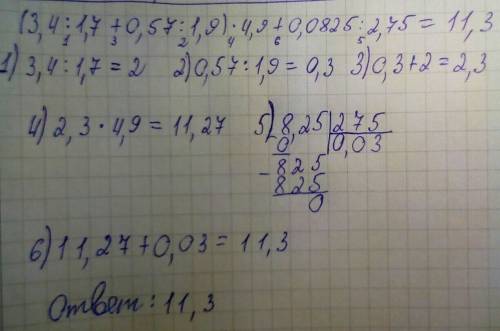 (3,4:1,7+0,57:1,9)·4,9+0,0825:2,75=11,3
1 3 2 4 6 5
1) 3,4:1,7=2 2) 0,57:1,9=0,3 3) 0,3+2=2,3
4) 2,3·4,9=11,27 5) 8,25 | 275
0 | 0,03
- 825
825
0
6) 11,27+0,03=11,3
Ответ: 11,3